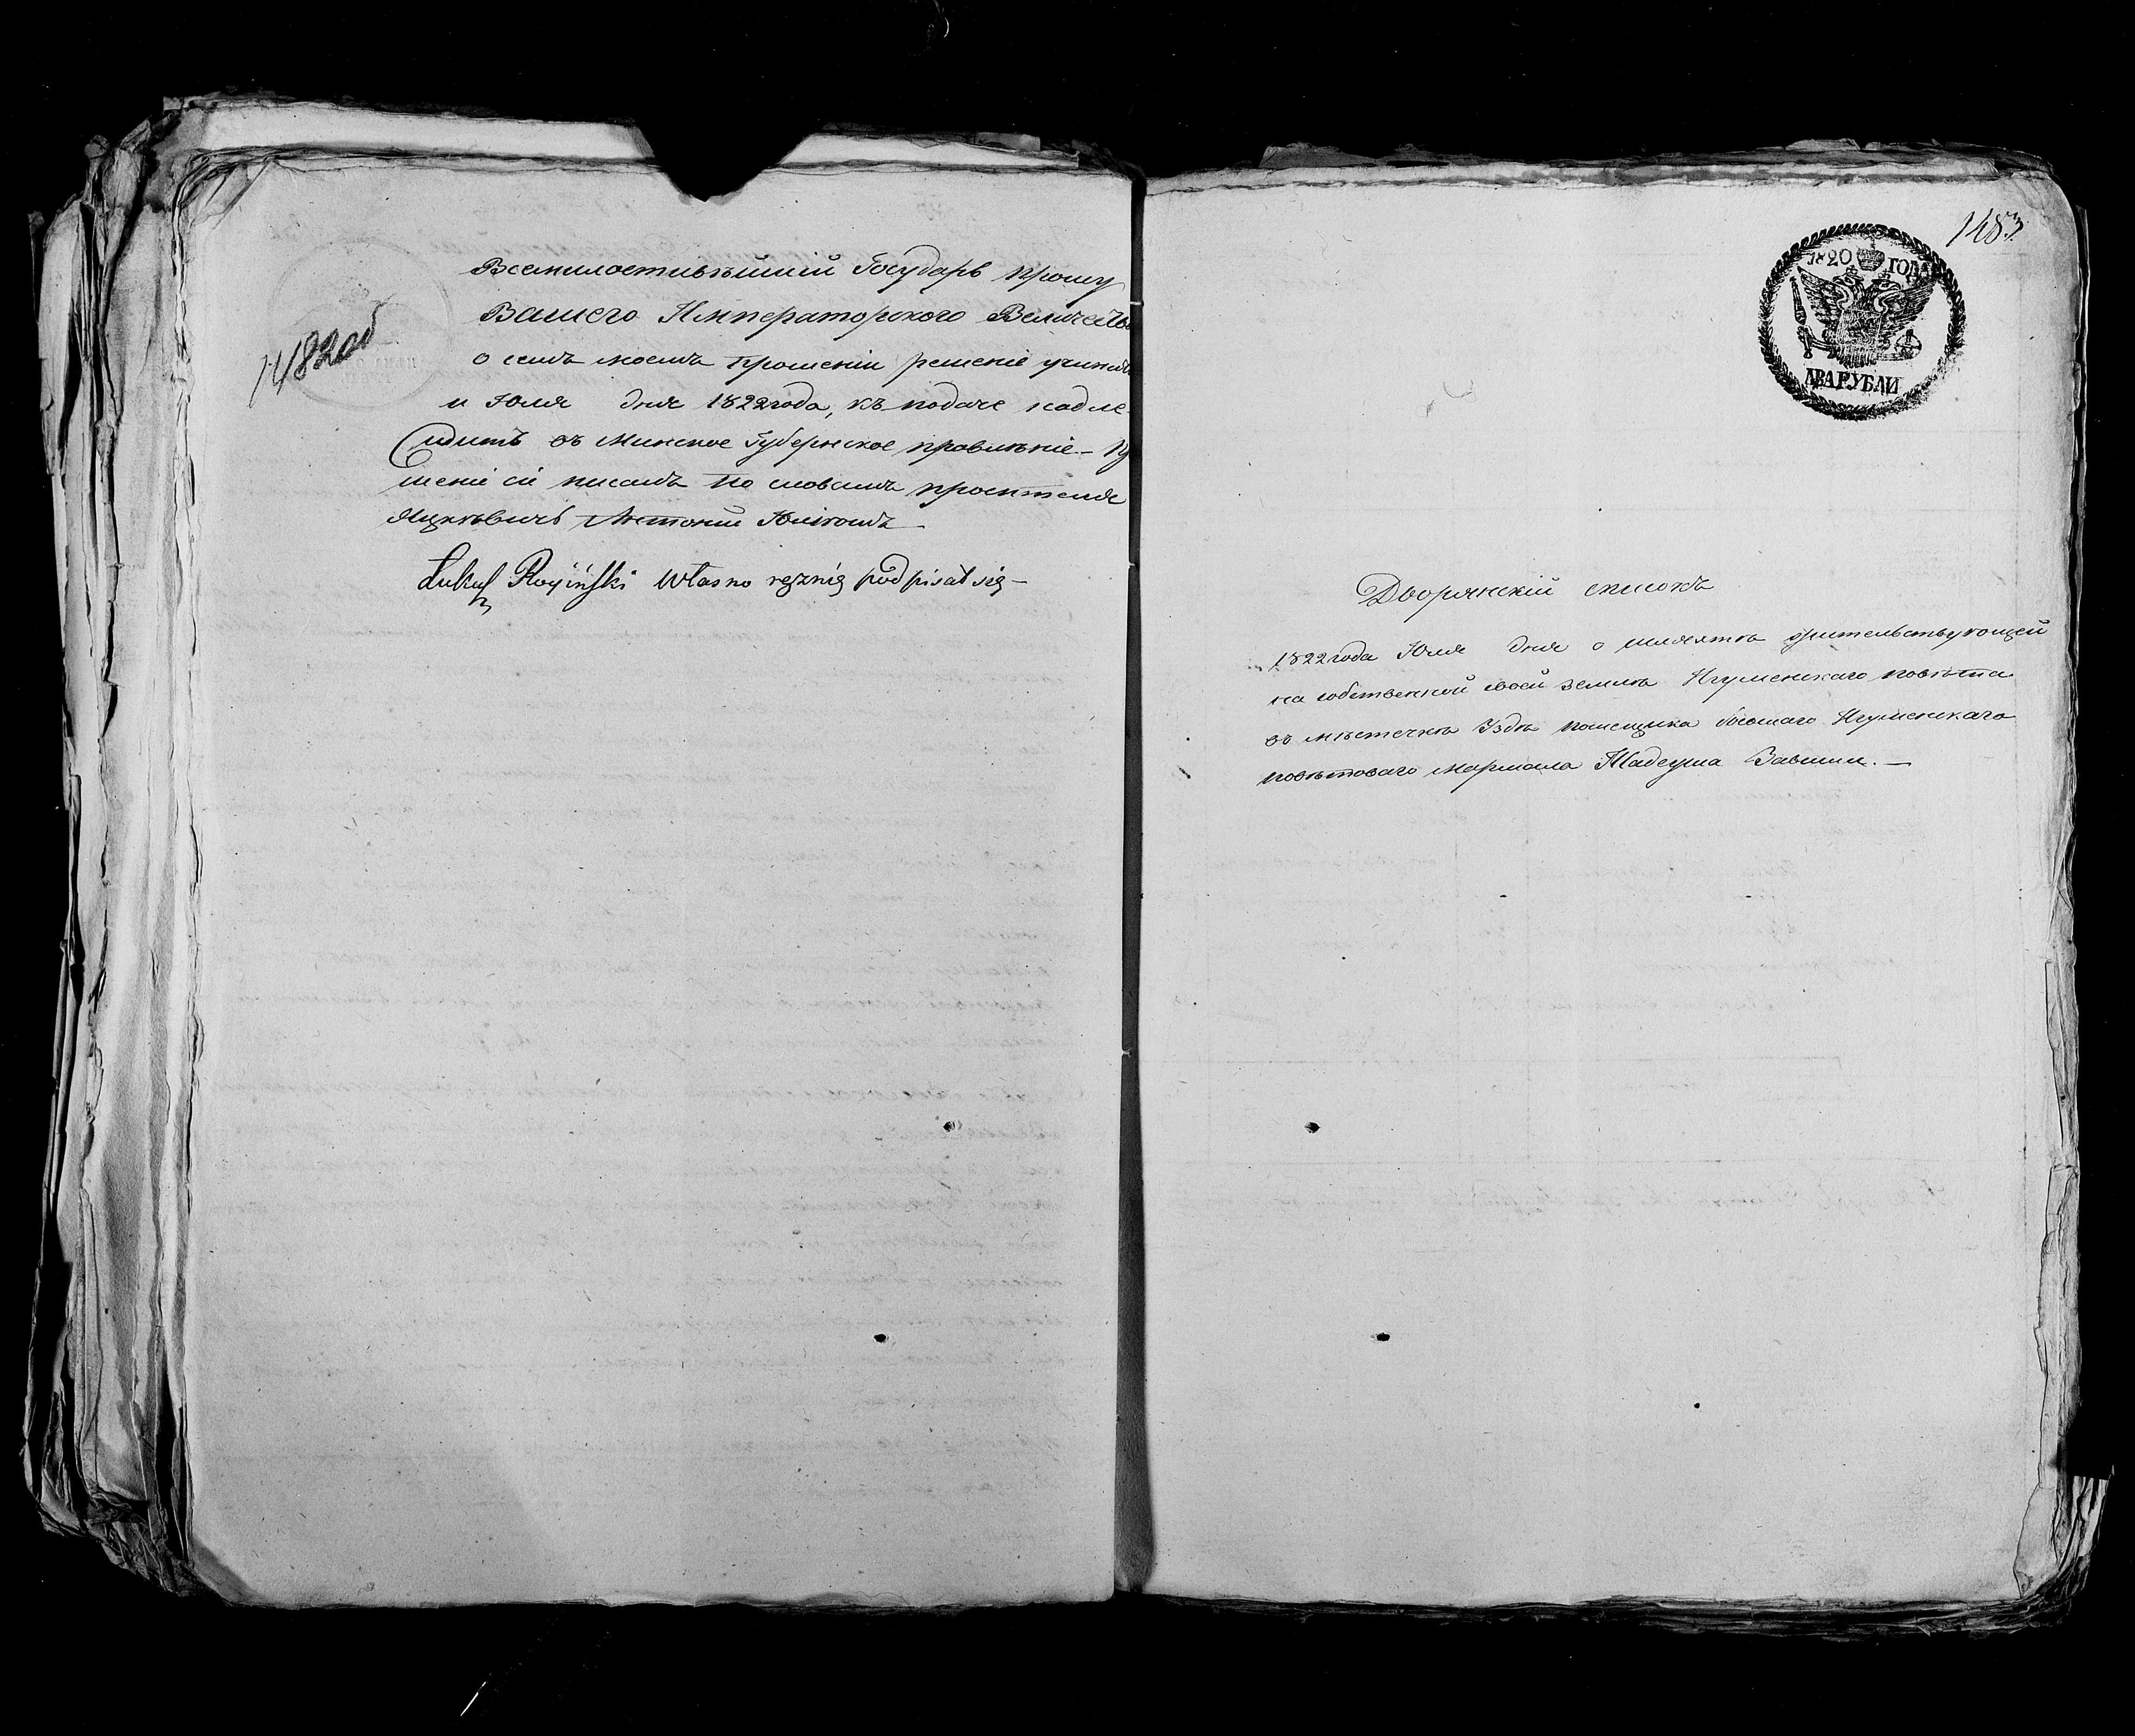 1482 об
Всемилостивѣйшій Государь прошу
Вашего Императорского Величеств
о семъ моемъ прошеніи решеніе учинить
и Юля дня 1822 года, къ подаче надле-
житъ въ Минское Губернское правленіе
шеніе сіе писалъ по словамъ просителя
Антоній
Łukasz własno ręcznię podpisał się
1483
1820 ГОДА
ДВА РУБЛИ
Дворянскій списокъ
1822 года Юля дня о шляхтѣ жительствующей
на собственной своей землѣ Игуменскаго повѣта
въ мѣстечкѣ Уздѣ помещика бывшаго Игуменскаго
повѣтоваго маршала Тадеуша Завиши.